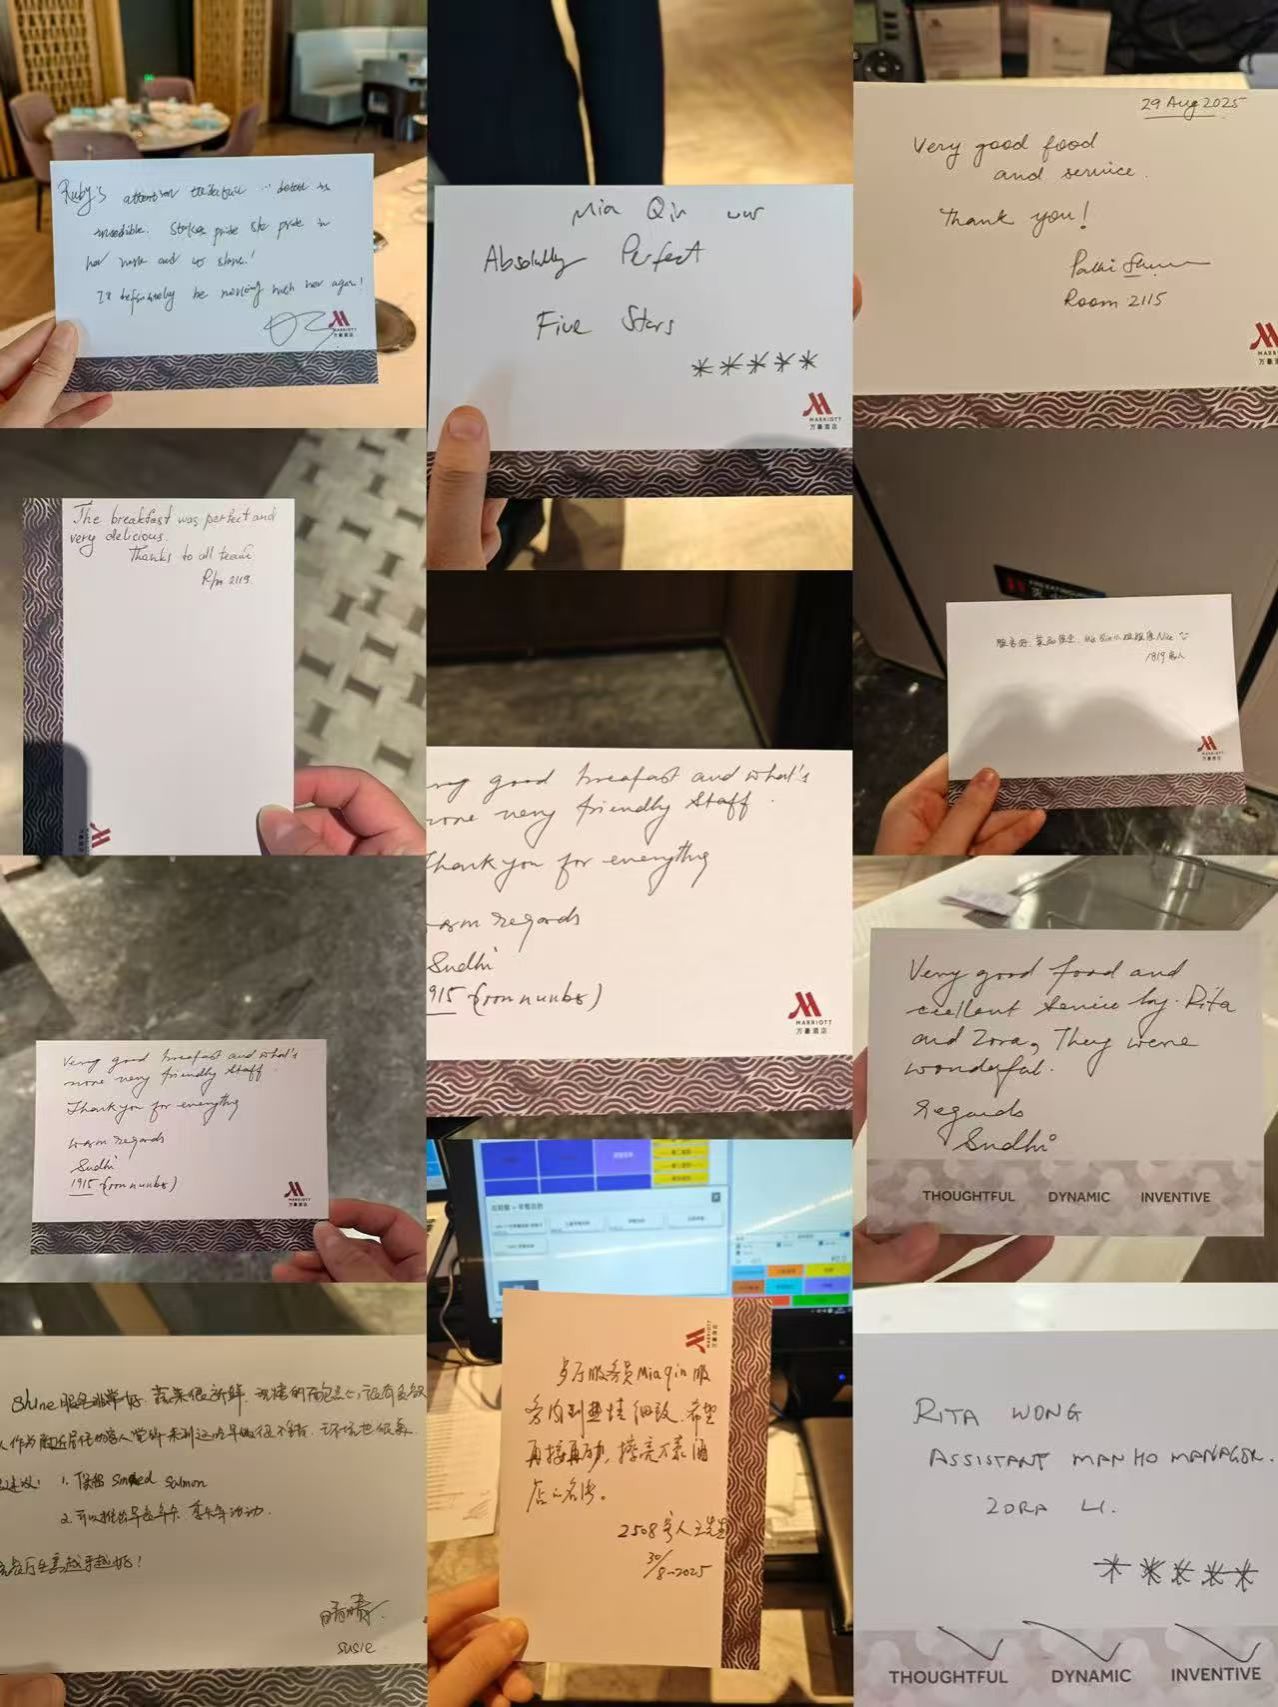 Ruby's attention to detail is
incredible. She takes pride in
her work and it shows!
I'll definitely be working with her again!
MARRIOTT
万豪酒店
Mia Qin
Absolutely Perfect
Five Stars
*****
MARRIOTT
万豪酒店
29 Aug 2025
Very good food
and service.
Thank you!
Room 2115
The breakfast was perfect and
very delicious.
Thanks to all team
R/m 2119
Very good breafast and what's
more very friendly staff.
Thank you for everything
warm regards
Sudhi
915 (room number)
MARRIOTT
万豪酒店
1819客人
MARRIOTT
Very good breafast and what's
more very friendly staff.
Thank you for everything
warm regards
Sudhi
1915 (room number)
MARRIOTT
万豪酒店
Very good food and
excellent service by Rita
and Zora, They were
wonderful.
regards
Sudhi
THOUGHTFUL DYNAMIC INVENTIVE
Shine服务非常好,蔬果很新鲜,现烤的面包
1. 保留 smoked salmon
2. 可以推出早套年卡、季卡等活动.
餐厅生意越来越好!
晴晴
susie
MARRIOTT
万豪酒店
多厅服务员Mia qin服
务周到热情细致,希望
再接再励,擦亮万豪酒
店的名片。
2508客人王先生
30/8-2025
RITA WONG
ASSISTANT MAN HO MANAGER.
ZORA LI.
*****
THOUGHTFUL DYNAMIC INVENTIVE